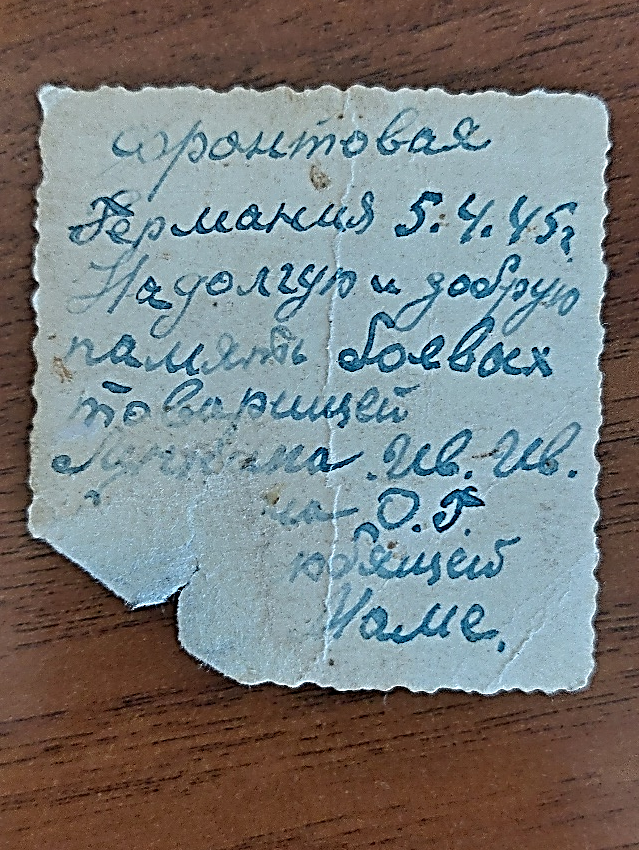 фронтовая
Германия 5.4.45г
На долгую и добрую
память боевых
товарищей
Ив. Ив.
на О.Г.
юбящей
Маме.